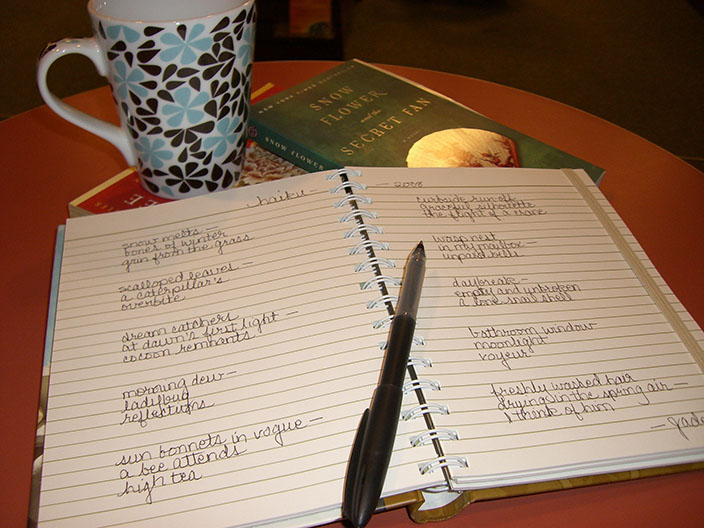 SNOW
FLOWER
and the
SECRET FAN
SNOW FLOWER
haiku —
snow melts —
bones of winter
grin from the grass
scalloped leaves —
a caterpillar's
overbite
dream catchers
at dawn's first light —
cocoon remnants
morning dew —
ladybug
reflections
sun bonnets in vogue —
a bee attends
high tea
— 2008
curbside run-off
graceful silhouette
the flight of a crane
wasp nest
in my mailbox —
unpaid bills
daybreak —
empty and unbroken
a lone snail shell
bathroom window
moonlight
voyeur
freshly washed hair
drying in the spring air —
I think of him
— Jade